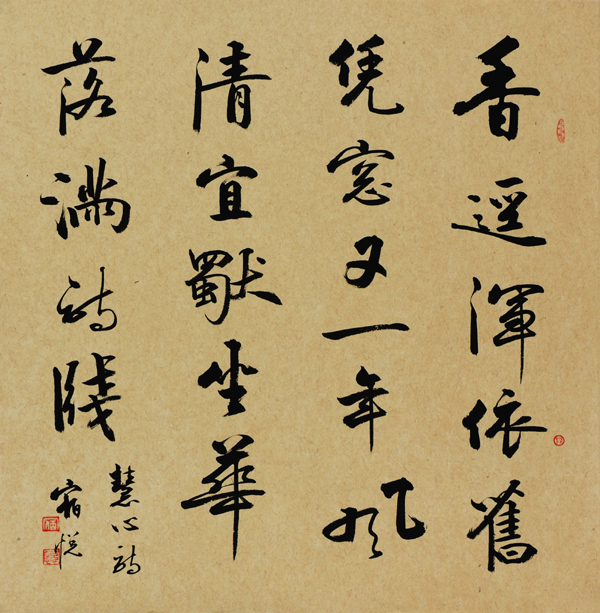 香逕渾依舊
凭窓又一年風
清宜獨坐華
落滿詩牋
慧心詩
宿悦